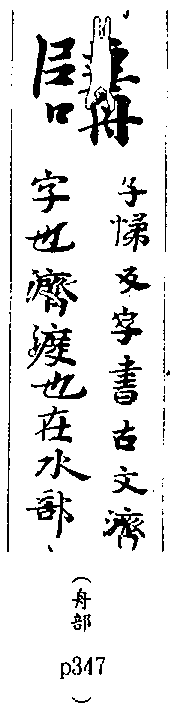 子悌反字書古文濟
字也濟渡也在水部
(舟部
p347
)